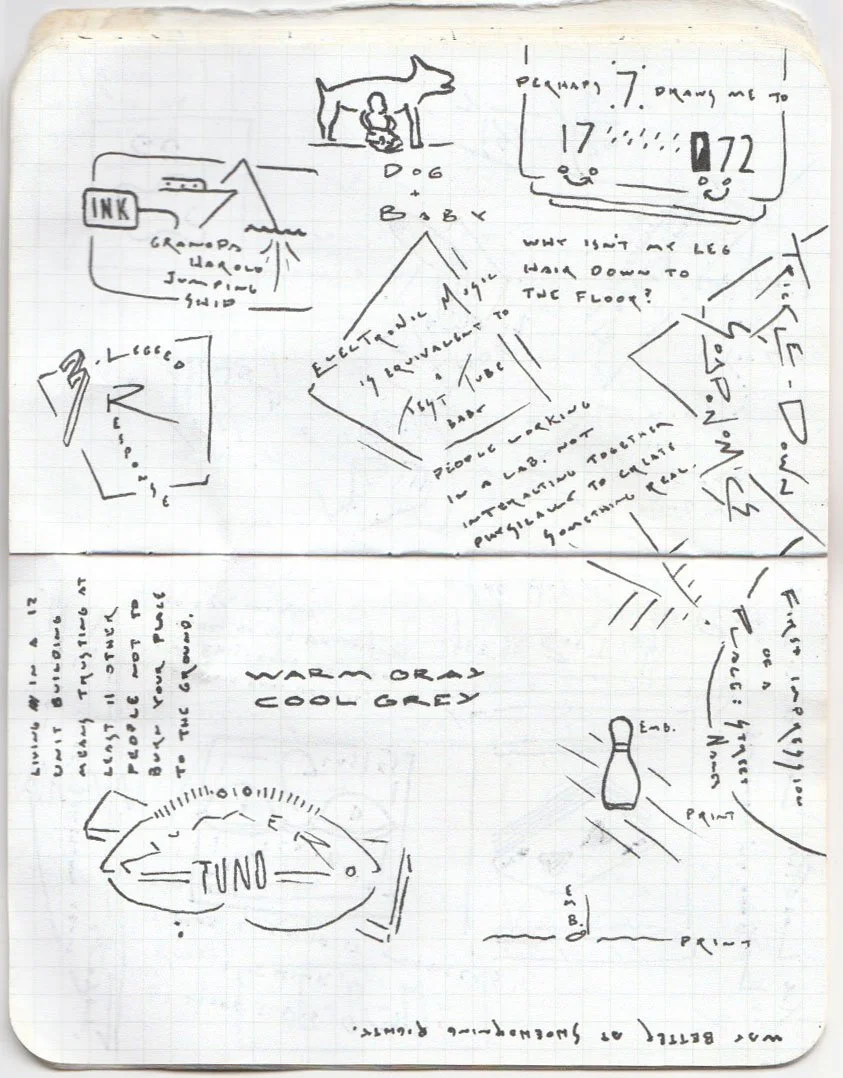 PERHAPS .7. DRAWS ME TO
17
72
DOG
+
BABY
INK
GRANDPA
HAROLD
JUMPING
SHIP
WHY ISN'T MY LEG
HAIR DOWN TO
THE FLOOR?
TRICKLE-DOWN
SOAPONOMICS
3-LEGGED
RESPONSE
ELECTRONIC MUSIC
IS EQUIVALENT TO
A
TEST TUBE
BABY
PEOPLE WORKING
IN A LAB, NOT
INTERACTING TOGETHER
PHYSICALLY TO CREATE
SOMETHING REAL.
LIVING IN A 12
UNIT BUILDING
MEANS TRUSTING AT
LEAST 11 OTHER
PEOPLE NOT TO
BURN YOUR PLACE
TO THE GROUND.
WARM GRAY
COOL GREY
FIRST IMPRESSION
OF A
PLACE: STREET
NAMES
EMB.
PRINT
TUNO
EMB.
PRINT
WAY BETTER AT SHOEHORNING RIGHTS.